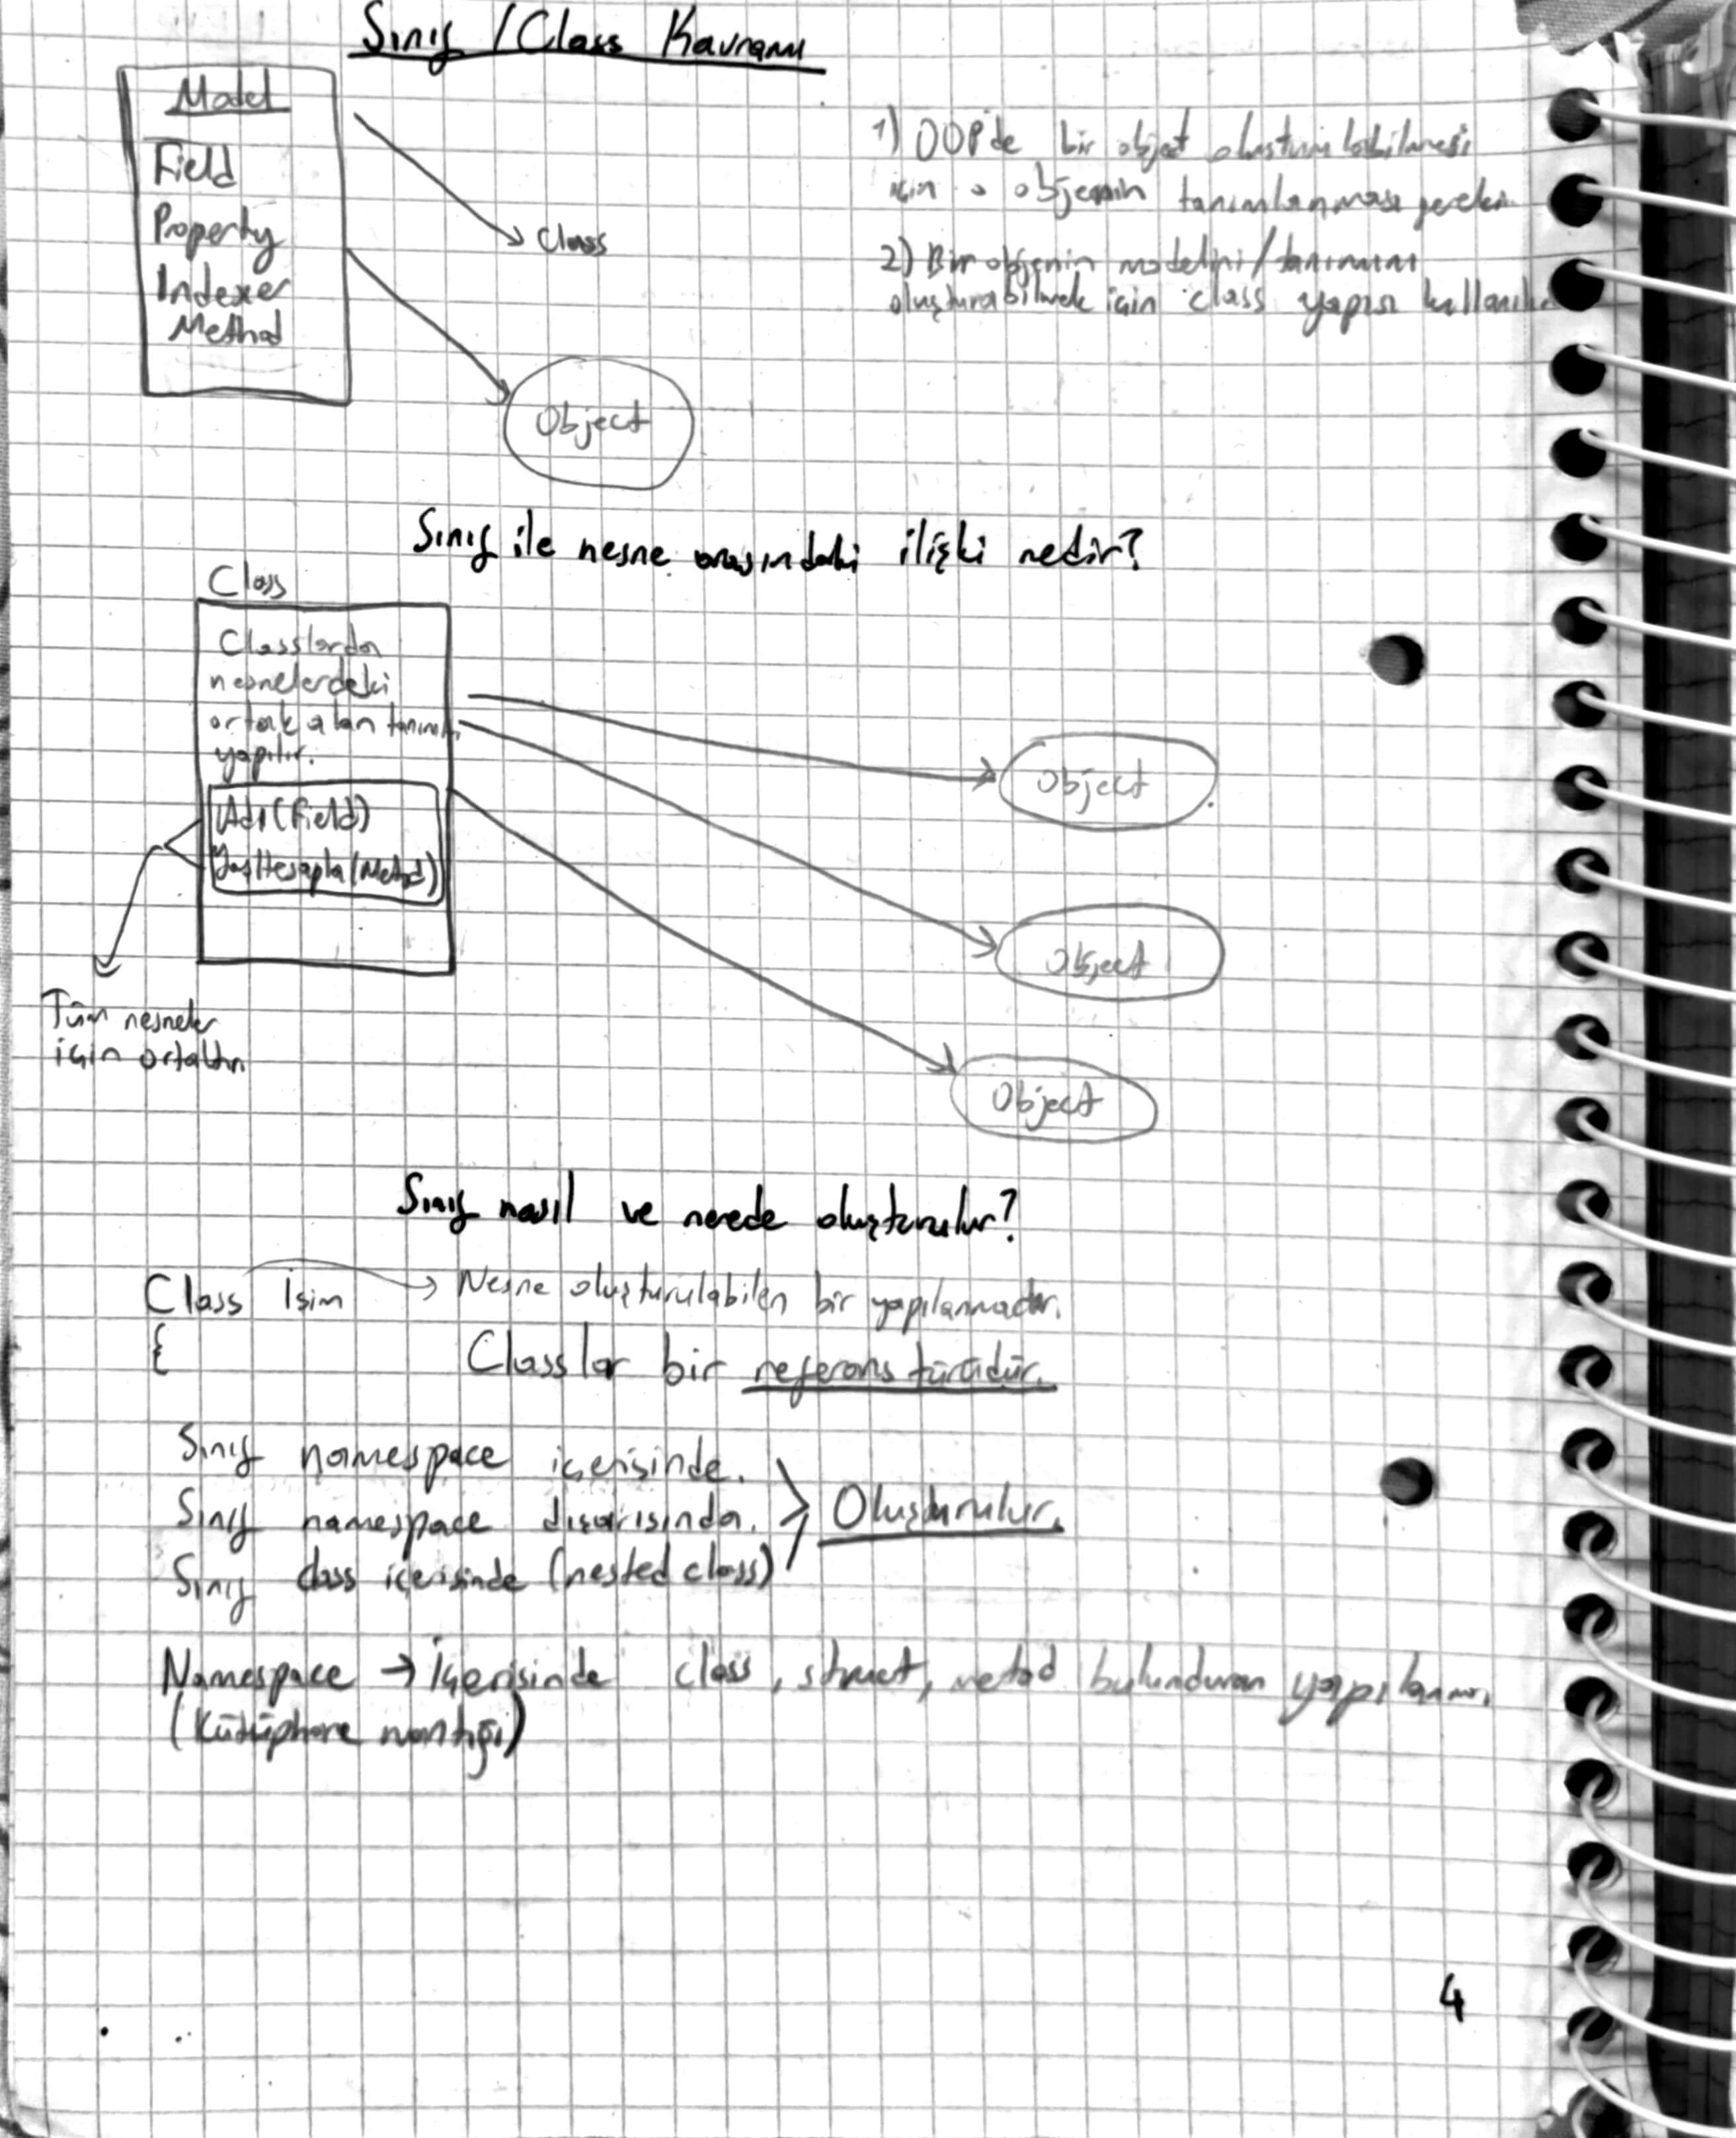 Sınıf / Class Kavramı
Model
Field
Property
Indexer
Method
Class
Object
1) OOP'de bir object oluşturulabilmesi
için o objenin tanımlanması gerekir.
2) Bir objenin modelini/tanımını
oluşturabilmek için class yapısı kullanılır
Sınıf ile nesne arasındaki ilişki nedir?
Class
Classlarda
nesnelerdeki
ortak alan tanımı
yapılır.
Adı (Field)
YaşHesapla (Metod)
Tüm nesneler
için ortaktır
Object
Object
Object
Sınıf nasıl ve nerede oluşturulur?
Class İsim → Nesne oluşturulabilen bir yapılanmadır.
{
Classlar bir referans türüdür.
Sınıf namespace içerisinde.
Sınıf namespace dışarısında. > Oluşturulur.
Sınıf class içerisinde (nested class)
Namespace → İçerisinde class, struct, metod bulunduran yapılanma.
(Kütüphane mantığı)
4